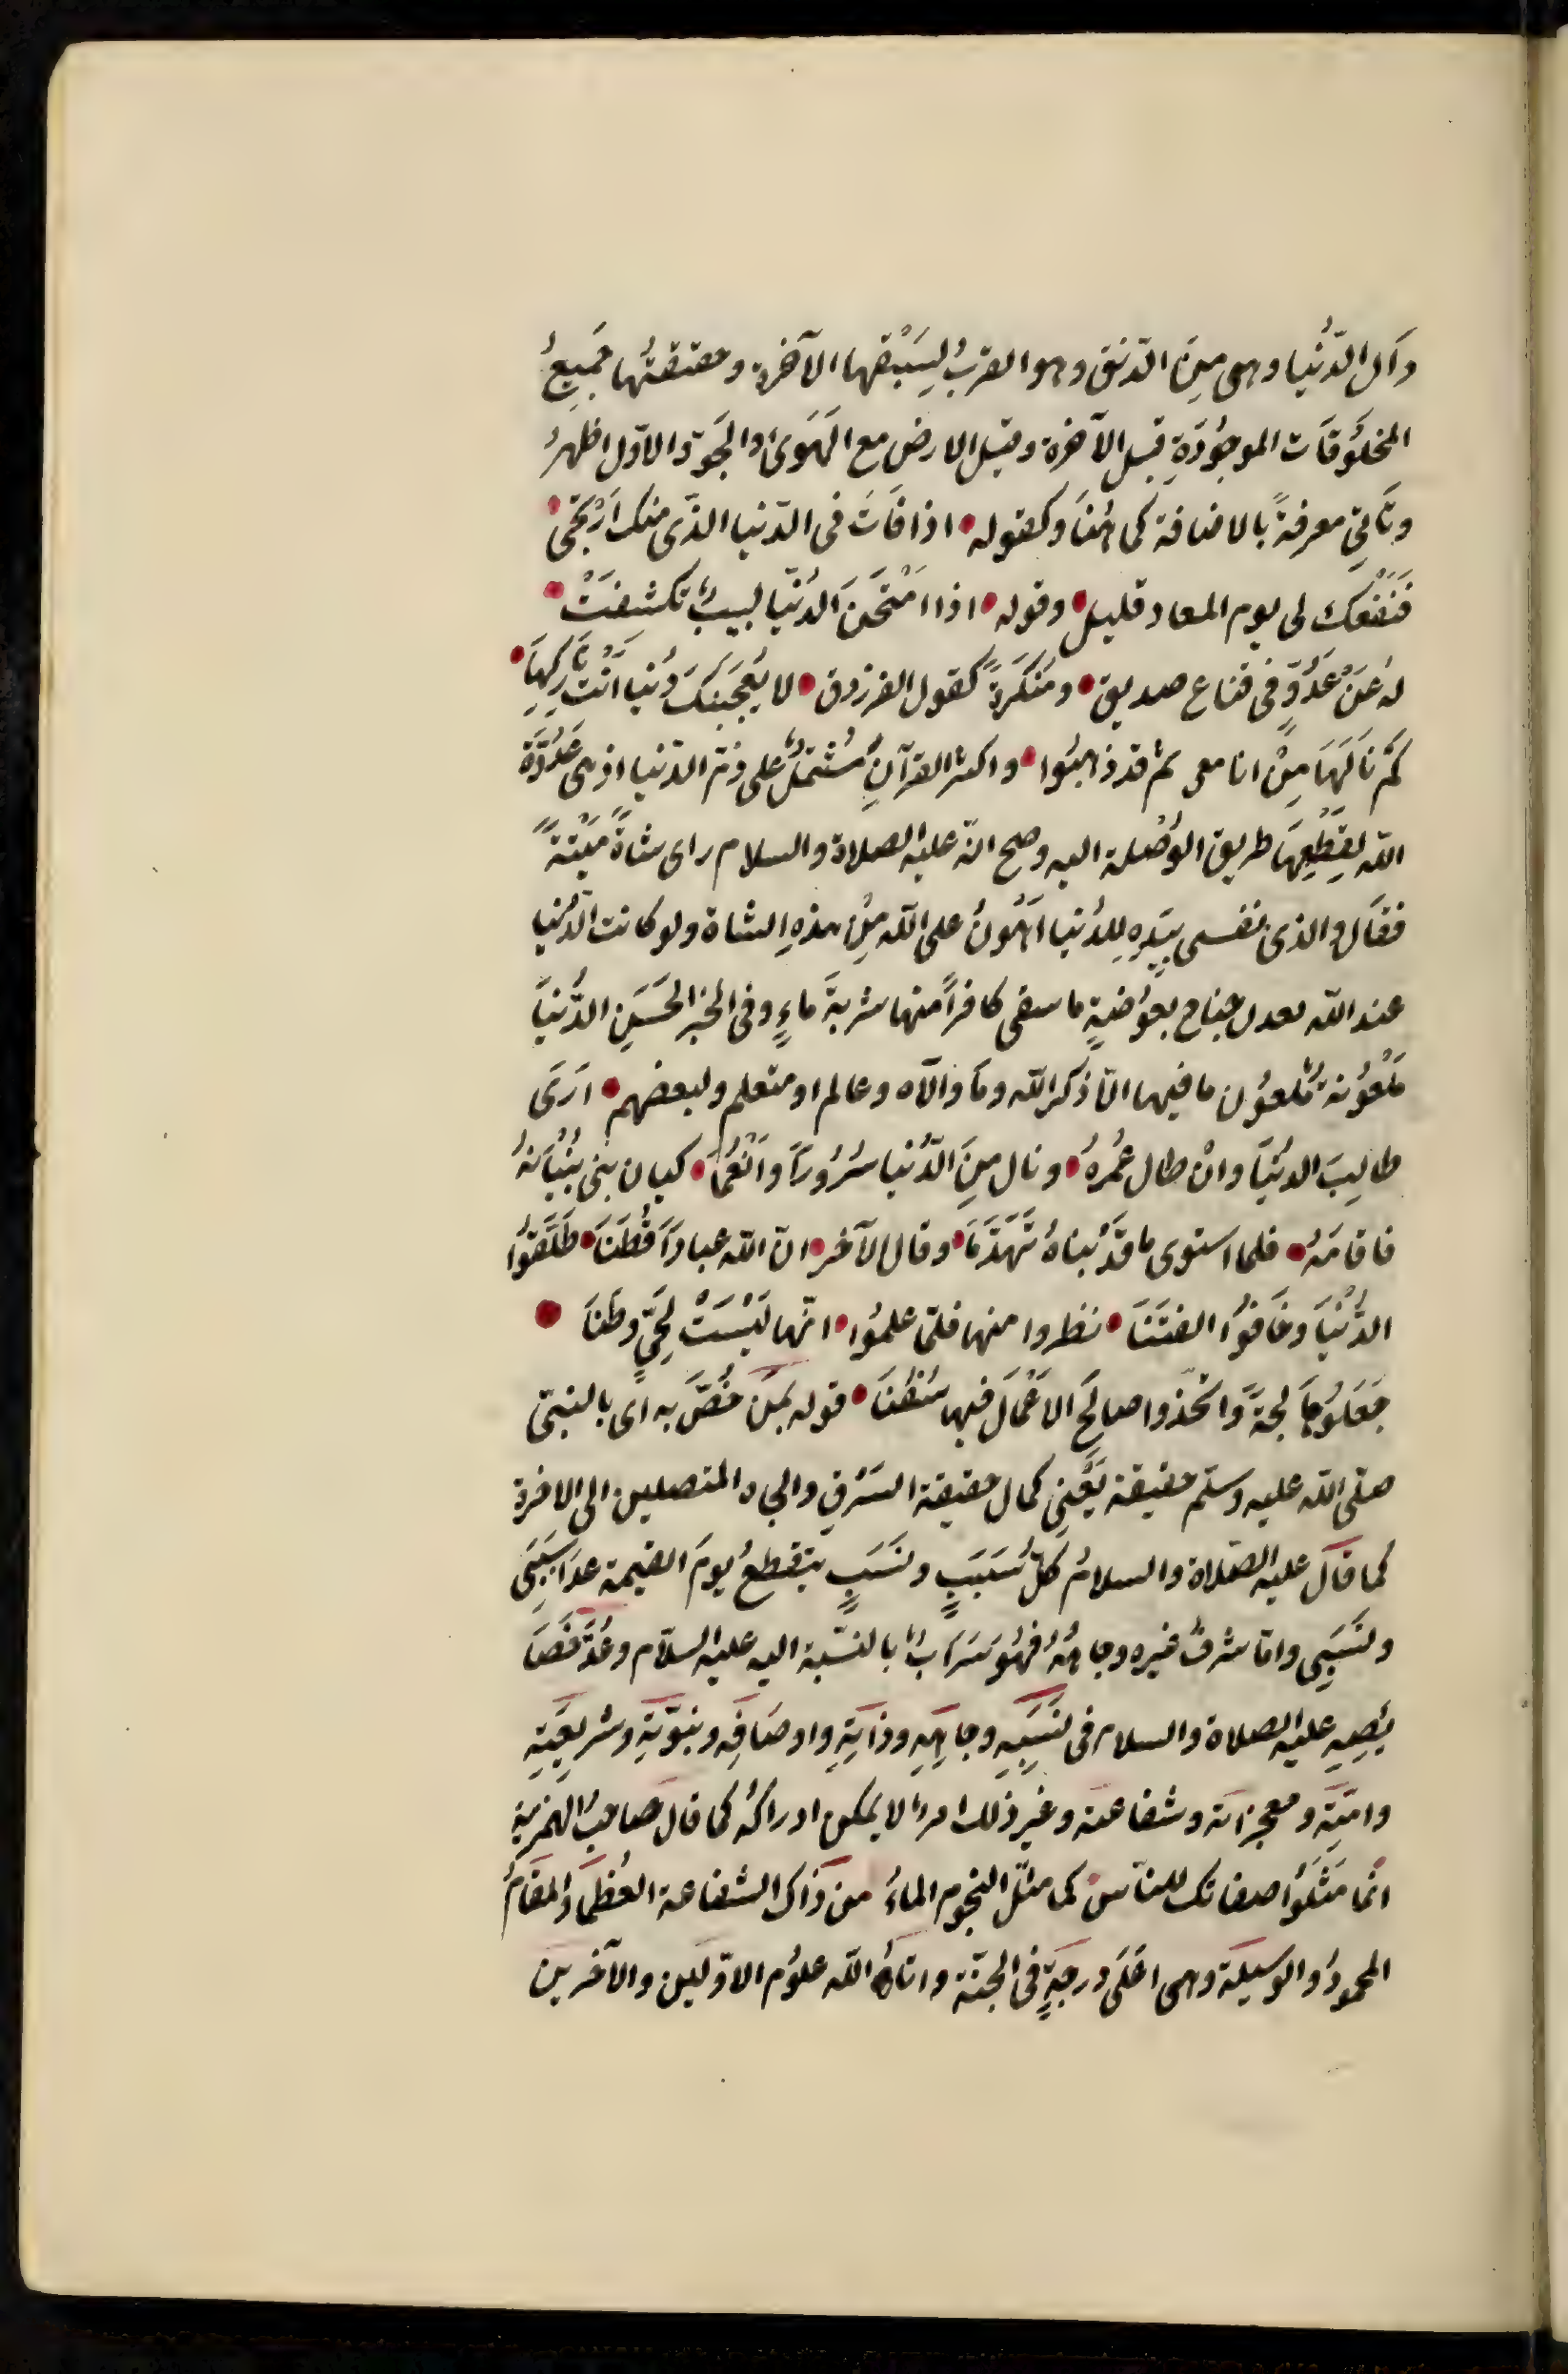 دَال الدُّنْيا وهى مِنَ الدّنوّ وهو القربُ لِسَبْقها الآخرة وحقيقتُها جَمِيعُ
المخلُوقَات الموجُودَةِ قبل الآخرة وقيل الارض مع الهَوَىٰ والجَوّ والاوّل اظهرُ
وتَأتِي معرفةً بالاضافة كما هُنَا وكقوله • اذا فَاتَ فى الدّنيا الذّى منك ارْتَجَى •
فَنَفْعُك لى يوم المعاد قليل • وقوله • اذا امْتَحَنَ الدُنْيَا لبيبٌ تكشفَتْ •
لهُ عَنْ عَدُوٍّ فى قناع صديق • ومُنَكَرَةً كقول الفرزدق • لا يُعْجِبَنكَ دُنْيا اَنْتَ تَارِكهَا •
كَمْ نَالَهَا مِنْ اناس ثم قد ذهَبُوا • واكثر القرآنِ مُشْتَمِلٌ على ذمّ الدّنيا اذ هى عَدُوَّة
اللّه لقطْعِهَا طريق الوُصْلة اليه وصح انّه عليه الصلاة والسلام راى شاةً مَيْتَةً
فقَال والذى نفسى بيَدِه لِلدُنيا اَهْوَنُ على اللّه مِنْ هذهِ الشاة ولو كانت الدُنيا
عند اللّه تعدل جناح بعُوضةٍ ما سقى كافراً منها شربةَ مَاءٍ وفى الخبر الحَسَنِ الدُّنيَا
مَلْعُونة مَلعُون ما فيها الّا ذكر اللّه ومَا والَاه وعالم او متعلم ولبعضهم • ارَى
طالِبَ الدُنيَا وانْ طال عُمُرهُ • ونال مِنَ الدُّنيا سُرُورَاً واَنْعُمَا • كبان بنى بُنْيَانهُ
فاقامَهُ • فلما استوى ما قَدْ بناهُ تَهَدَّمَا • وقال الآخر • انّ اللّه عبادَاً فُطَنَا • طَلَّقُوا
الدُّنْيَا وخَافوُا الفتَنَا • نظروا منها فلمّا علموُا • انّها لَيْسَتْ لِحَيٍّ وطَنَا •
جَعَلوُهَا لجةً وَاتّخذوا صالحَ الاَعْمَال فيها سُفُنَا • قوله بمَن خُصَّ به اى بالنبّى
صلّى اللّه عليه وسلّم حقيقة يَعْنِى كمال حقيقة الشرفِ والجاه المتصلين الى الاخرة
كما قال عليه الصّلاة والسلامُ كلّ سَبَبٍ ونَسَبٍ ينقطعُ يومَ القيمة عدَا سَبَبِى
ونَسَبِى وامّا شرفُ غيره وجاهُهُ فهُو سَرَابٌ بالنسّبة اليه عليه السلام وعَدّ خصَا
يُصِهِ عليه الصلاة والسلام فى نَسَبِهِ وجاهِهِ وذاتِهِ واوصَافِه ونبوّتِهِ وشريعَتِهِ
وامّتِهِ ومعجزاته وشفاعته وغير ذلك امرٌ لا يمكن ادراكُه كما قال صَاحبُ الهمزية
انّما مَثّلوُا صفاتك للنّاس كما مثّل النجوم الماءُ فمن ذَاك الشفاعة العُظمَى والمقَامُ
المحمودُ والوسيلَة وهى اعْلَى درجةٍ فى الجنّة واتاهُ اللّه علوُم الاوّلين والآخرين